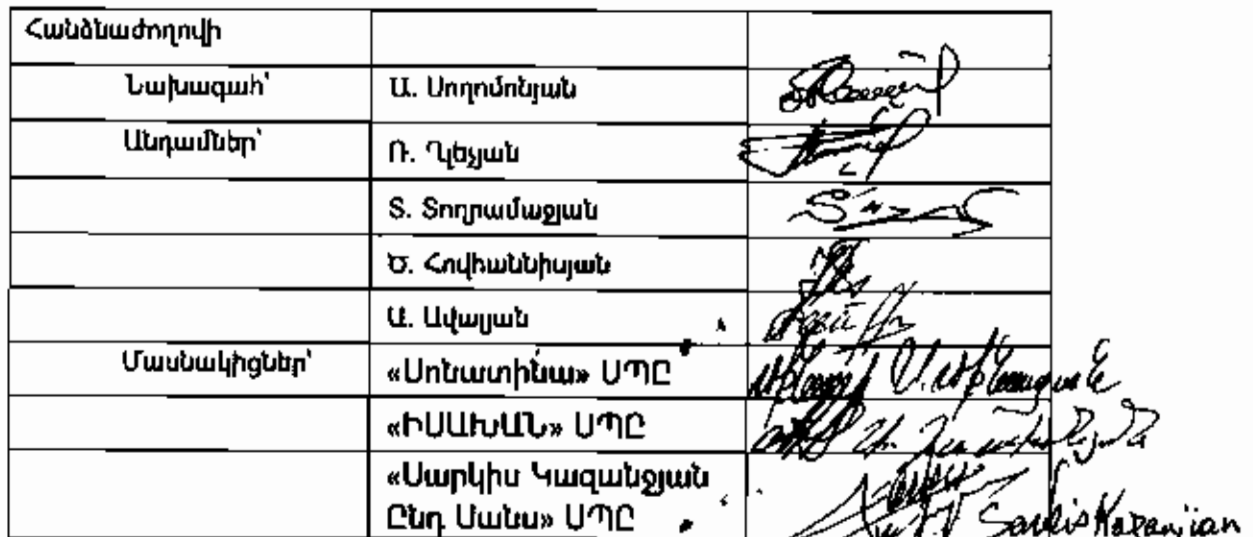 Հանձնաժողովի
Նախագահ՝ Ա. Սողոմոնյան
Անդամներ՝ Ռ. Ղեչյան
Տ. Տողրամաջյան
Ծ. Հովհաննիսյան
Ա. Ավալյան
Մասնակիցներ՝ «Սոնատինա» ՍՊԸ
«ԻՍԱԽԱՆ» ՍՊԸ
«Սարկիս Կազանջյան
Ընդ Սանս» ՍՊԸ Sarkis Kazanjian